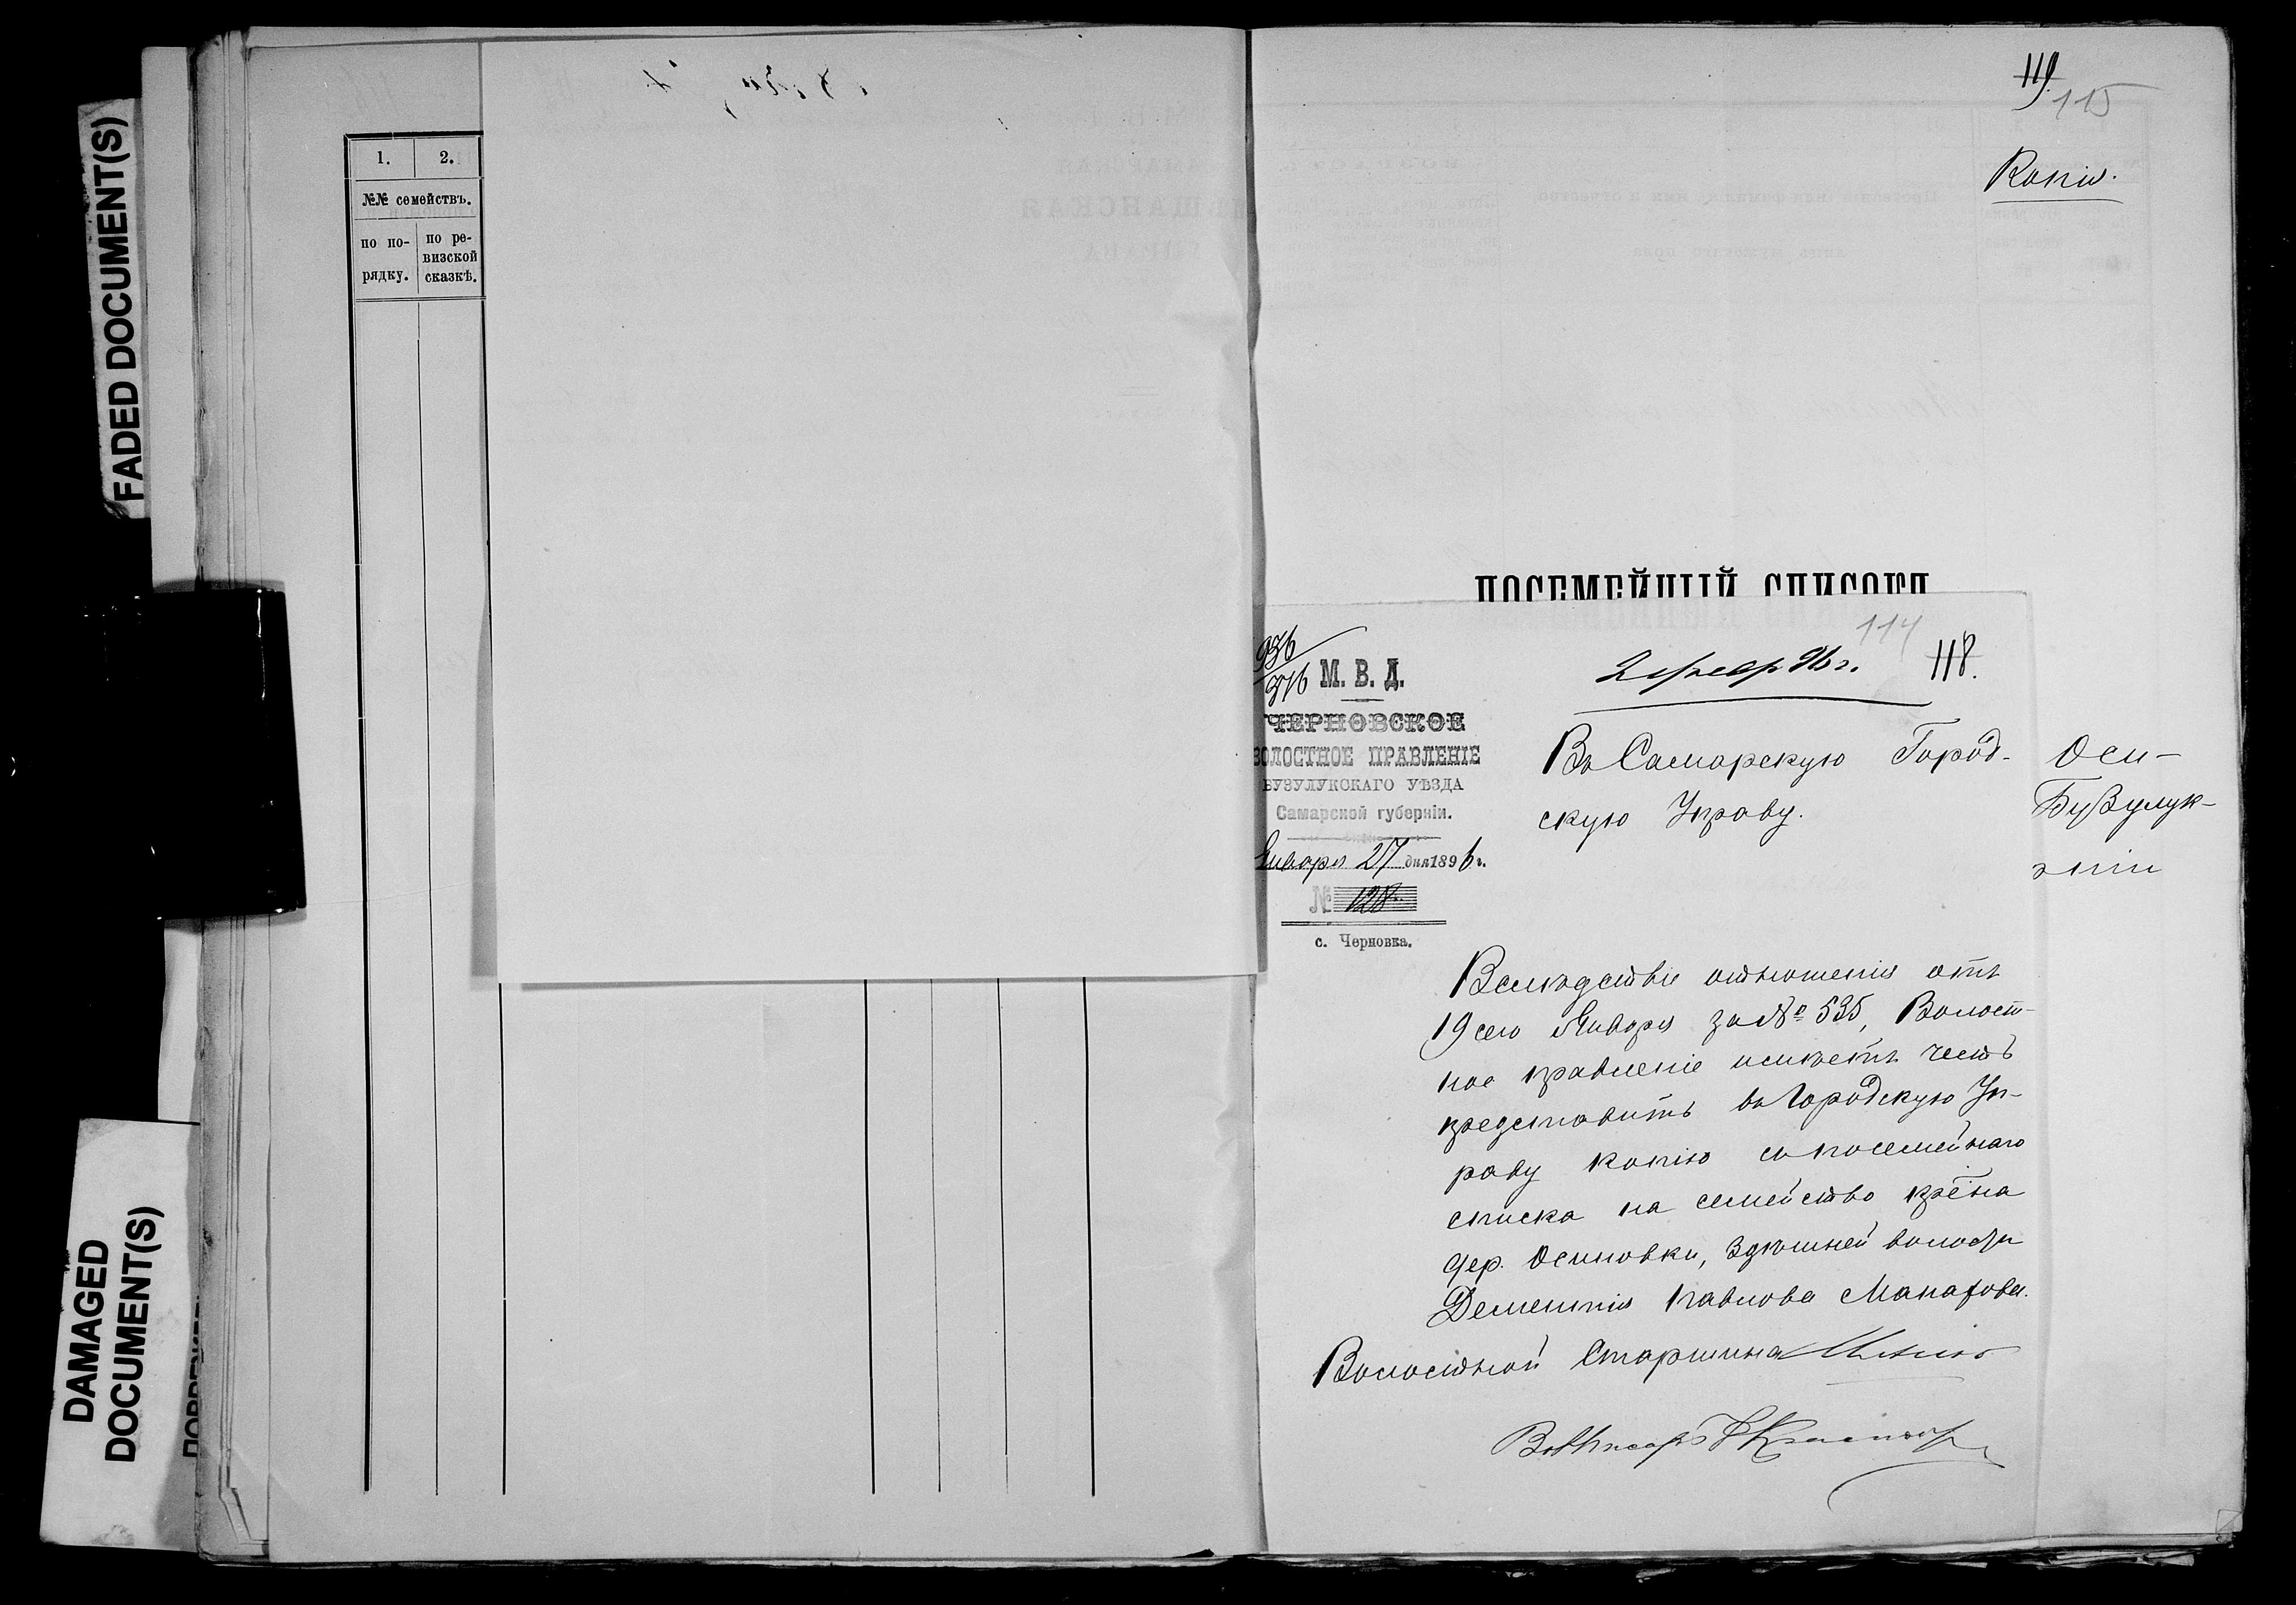 FADED DOCUMENT(S)
DAMAGED
DOCUMENT(S)
1. 2.
№№ семействъ.
по по-
рядку.
по ре-
визской
сказкѣ.
119.
115
Копія.
ПОСЕМЕЙНЫЙ СПИСОКЪ
114
118.
936
376
2 февр 96 г.
М. В. Д.
ЧЕРНОВСКОЕ
ВОЛОСТНОЕ ПРАВЛЕНІЕ
БУЗУЛУКСКАГО УѢЗДА
Самарской губерніи.
Января 27 дня 1896 г.
№ 128
с. Черновка.
Въ Самарскую Город-
скую Управу.
Оси-
Бузулук-
Вслѣдствіе отношенія отъ
19 сего Января за № 535, Волост-
ное правленіе имѣетъ честь
представить въ Городскую Уп-
раву копію съ посемейнаго
списка на семейство крѣна
дер. Осиновки, здѣшней волости
Дементія Павлова Манахова.
Волостной Старшина